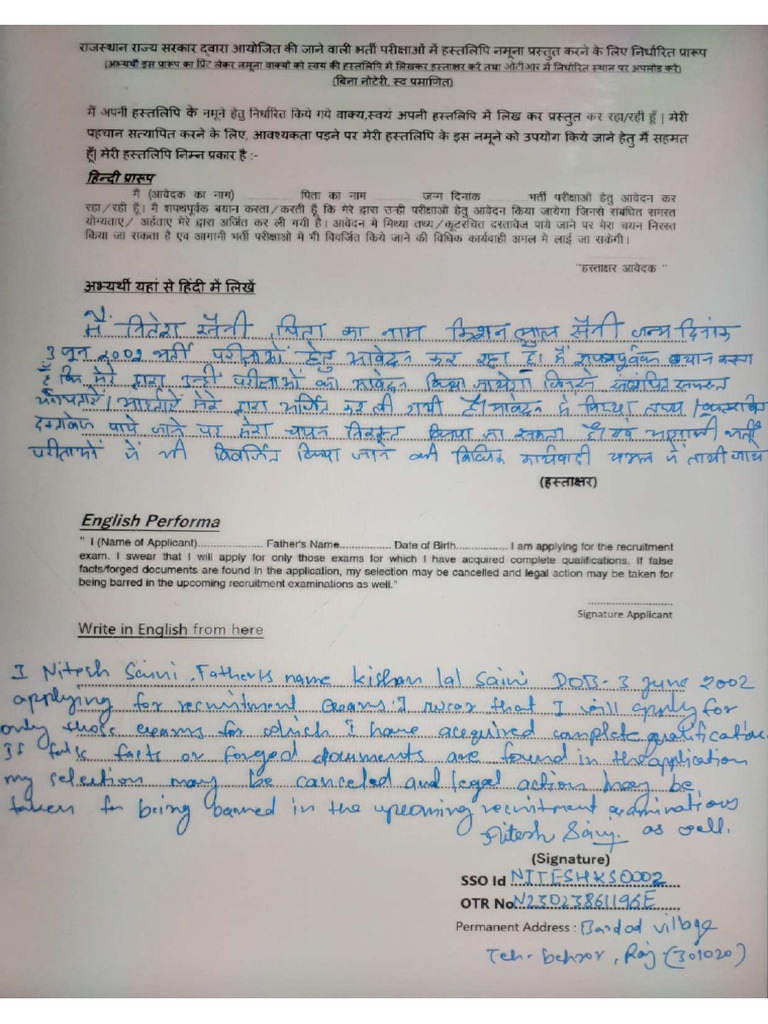 राजस्थान राज्य सरकार द्वारा आयोजित की जाने वाली भर्ती परीक्षाओं में हस्तलिपि नमूना प्रस्तुत करने के लिए निर्धारित प्रारूप
(अभ्यर्थी इस प्रारूप का प्रिंट लेकर नमूना वाक्यों को स्वयं की हस्तलिपि में लिखकर हस्ताक्षर करें तथा ओटीआर में निर्धारित स्थान पर अपलोड करें)
(बिना नोटेरी, स्व प्रमाणित)
मैं अपनी हस्तलिपि के नमूने हेतु निर्धारित किये गये वाक्य,स्वयं अपनी हस्तलिपि में लिख कर प्रस्तुत कर रहा/रही हूँ | मेरी
पहचान सत्यापित करने के लिए, आवश्यकता पड़ने पर मेरी हस्तलिपि के इस नमूने को उपयोग किये जाने हेतु मैं सहमत
हूँ| मेरी हस्तलिपि निम्न प्रकार है :-
हिन्दी प्रारूप
मैं (आवेदक का नाम) .................... पिता का नाम .................... जन्म दिनांक ............ भर्ती परीक्षाओं हेतु आवेदन कर
रहा/रही हूँ। मैं शपथपूर्वक बयान करता/करती हूँ कि मेरे द्वारा उन्हीं परीक्षाओं हेतु आवेदन किया जायेगा जिनसे संबंधित समस्त
योग्यताएं/ अर्हताएं मेरे द्वारा अर्जित कर ली गयी है। आवेदन में मिथ्या तथ्य/कूटरचित दस्तावेज पाये जाने पर मेरा चयन निरस्त
किया जा सकता है एवं आगामी भर्ती परीक्षाओं में भी विवर्जित किये जाने की विधिक कार्यवाही अमल में लाई जा सकेगी।
"हस्ताक्षर आवेदक "
अभ्यर्थी यहां से हिंदी में लिखें
मैं नितेश सैनी ,पिता का नाम किशन लाल सैनी जन्म दिनांक
3 जून 2002 भर्ती परीक्षाओं हेतु आवेदन कर रहा हूं। मैं शपथपूर्वक बयान करता
हूँ कि मेरे द्वारा उन्हीं परीक्षाओं का आवेदन किया जायेगा जिनसे संबंधित समस्त
मेरे द्वारा अर्जित कर ली गयी है। आवेदन में मिथ्या तथ्य /
दस्तावेज पाये जाने पर मेरा चयन निरस्त किया जा सकता है। एवं आगामी भर्ती
परीक्षाओं में भी विवर्जित किया जाने की विधिक कार्यवाही अमल में लायी जाय
(हस्ताक्षर)
English Performa
" I (Name of Applicant)..................... Father's Name................ Date of Birth................ I am applying for the recruitment
exam. I swear that I will apply for only those exams for which I have acquired complete qualifications. If false
facts/forged documents are found in the application, my selection may be cancelled and legal action may be taken for
being barred in the upcoming recruitment examinations as well."
Signature Applicant
Write in English from here
I Nitesh Saini , Father's name kishan lal Saini DOB - 3 June 2002
applying for recruitment exams. I swear that I will apply for
only those exams for which I have acequired complete qualification.
If false facts or forged documents are found in the application
my selection may be canceled and legal action may be
taken for being barred in the upcoming recruitment examinations
Nitesh Saini as well.
(Signature)
SSO Id NITESHKS0002
OTR No. N23023861196E
Permanent Address : Bardod village
Teh - behror , Raj. (301020)